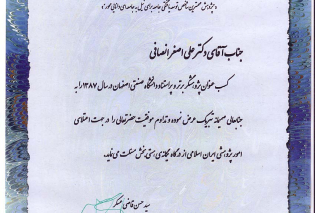 جناب آقای دکتر علی اصغر انصافی
کسب عنوان پژوهشگر برتر و پر استناد دانشگاه صنعتی اصفهان در سال ۱۳۸۷ را به
جنابعالی صمیمانه تبریک عرض نموده و تداوم موفقیت حضرتعالی را در جهت اعتلای
امور پژوهشی ایران اسلامی از درگاه یگانه هستی بخش مسئلت می نماید.
سید حسن قاضی عسگر